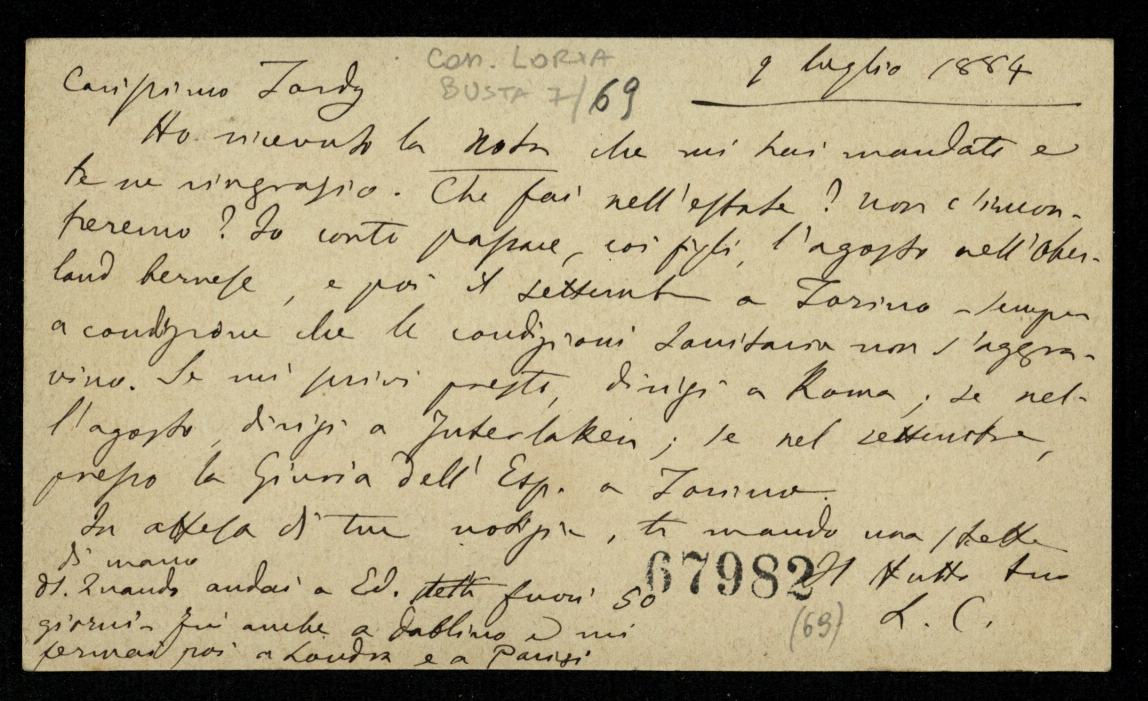 Con. LORIA
BUSTA 7/69
9 luglio 1884
Carissimo Tardy
Ho ricevuto la Nota che mi hai mandato e
te ne ringrazio. Che fai nell'estate? non c'incon-
treremo? Io conto passare, coi figli, l'agosto nell'Ober-
land bernese, e poi il settembre a Torino - sempre
a condizione che le condizioni sanitarie non s'aggra-
vino. Se mi scrivi presto, dirigi a Roma; se nel-
l'agosto, dirigi a Interlaken; se nel settembre,
presso la Giuria dell'Esp. a Torino.
In attesa di tue notizie, ti mando una stretta
di mano
Il tutto tuo
L. C.
Quando andai a Ed. stetti fuori 50
giorni - fui anche a Dublino e mi
fermai poi a Londra e a Parigi
67982
(69)